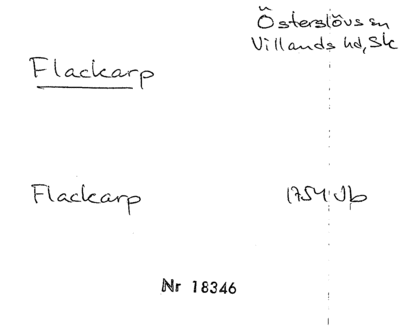 Österslövs sn
Villands hd, Sk
Flackarp
Flackarp 1754 Jb
Nr 18346